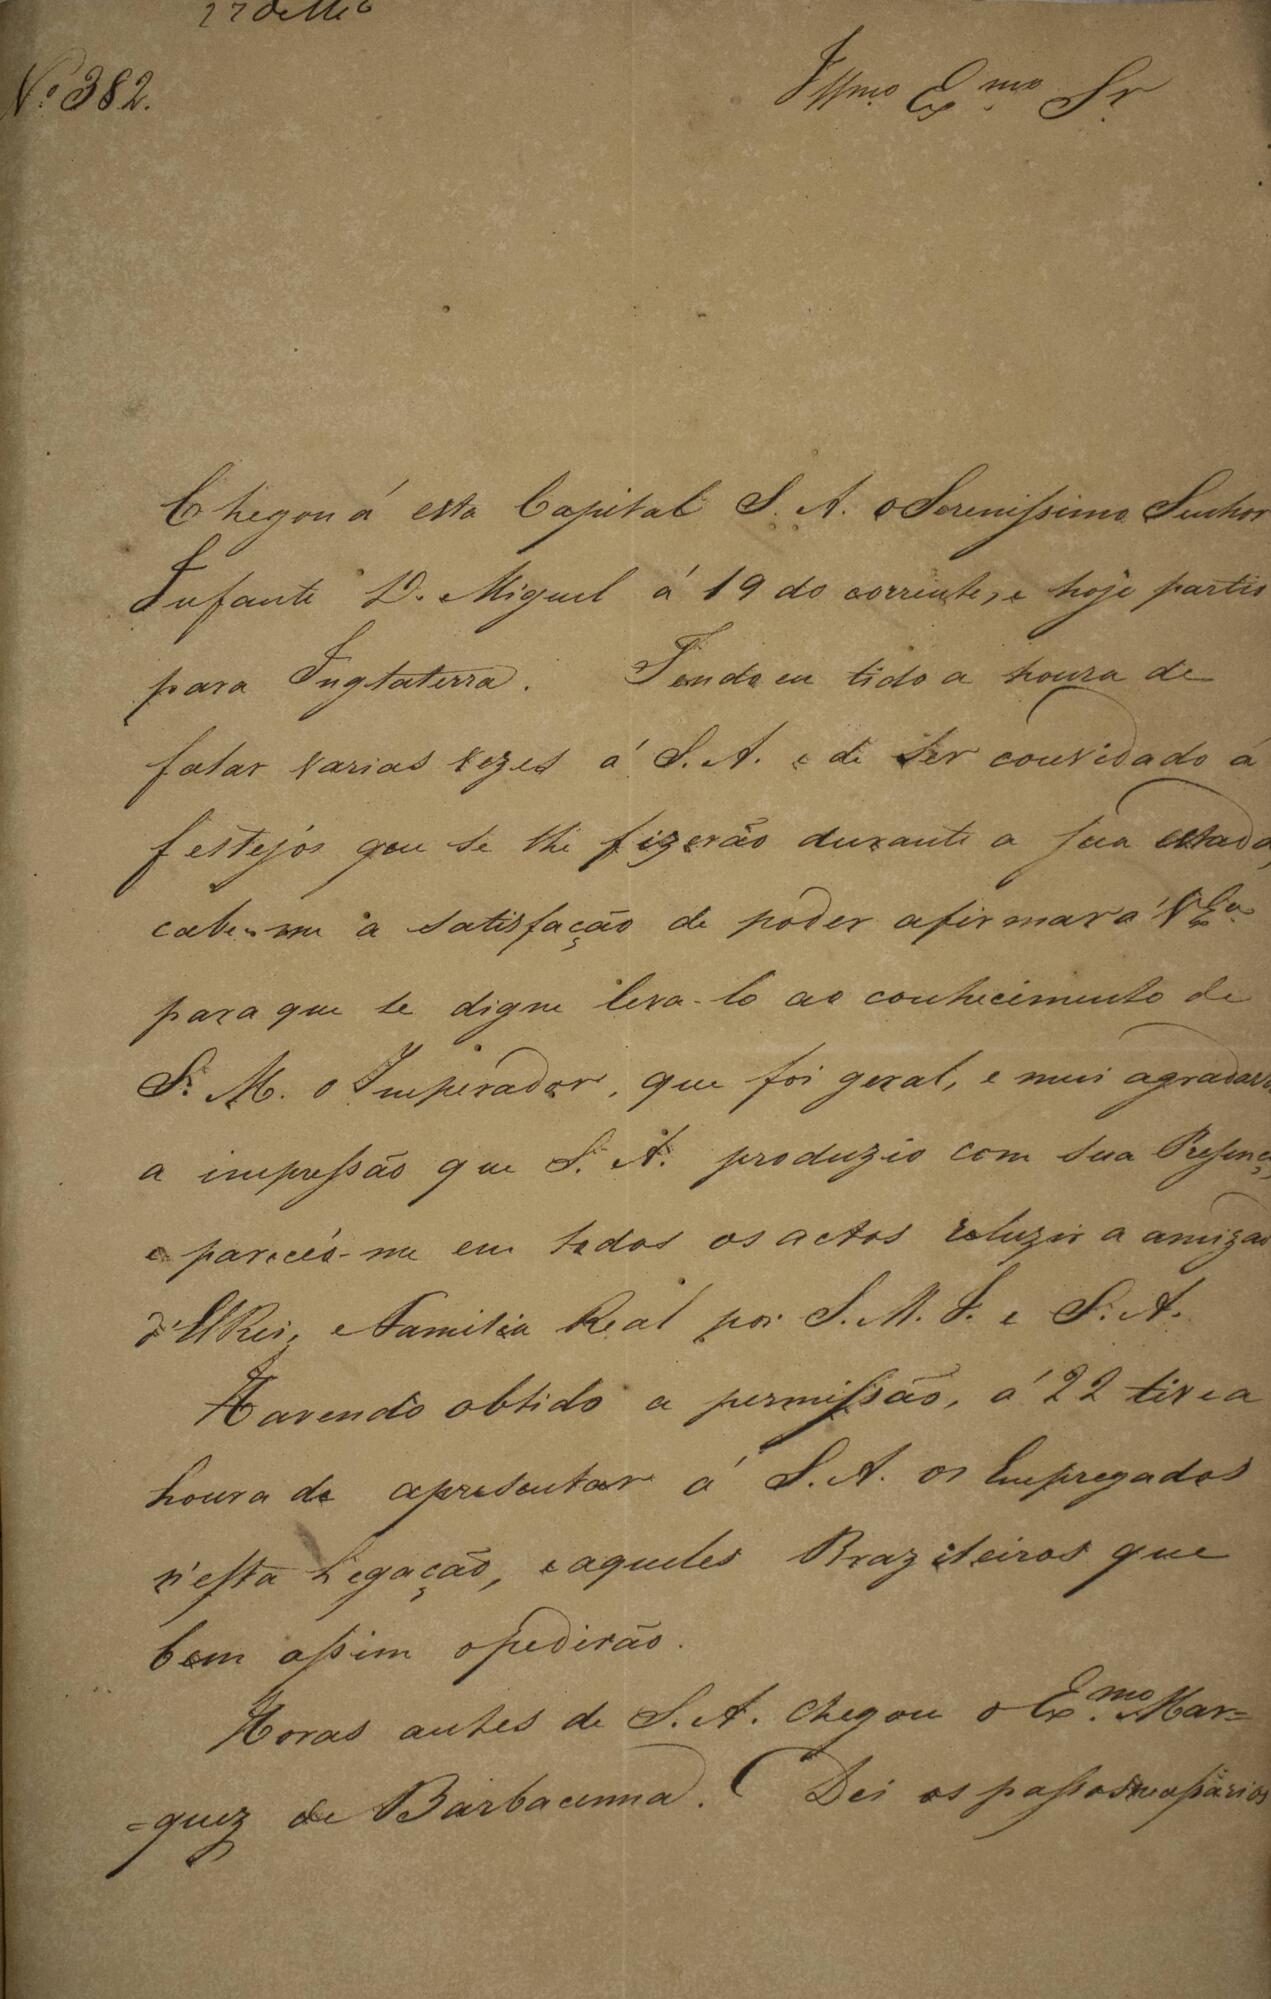 27 de
Nº 382.
Illmo Exmo Sr
Chegou á esta Capital S. A. o Serenissimo Senhor
Infante D. Miguel á 19 do corrente, e hoje partio
para Inglaterra. Tendo eu tido a honra de
falar varias vezes á S. A. e de ser convidado á
festejos que se lhe fizerão durante a sua estada,
cabe-me a satisfação de poder afirmar á V Exa
para que se digne leva-lo ao conhecimento de
S. M. o Imperador, que foi geral, e mui agradavel
a impressão que S. A. produzio com sua Presença,
e pareceo-me em todos os actos reluzir a amizade
d'ElRei, e Familia Real por S. M. I. e S. A.
Havendo obtido a permissão, á 22 tive a
honra de apresentar á S. A. os Empregados
n'esta Legação, e aqueles Brazileiros que
bem assim o pedirão.
Horas antes de S. A. chegou o Exmo Mar=
=quez de Barbacenna. Dei os passos necessarios